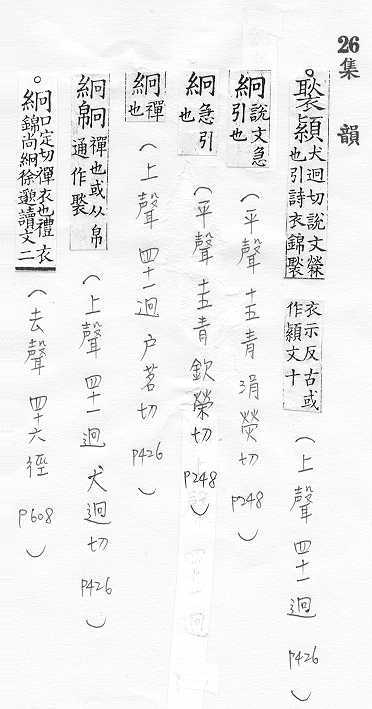 26集韻
褧穎犬迥切說文檾也引詩衣錦褧衣示反古或作穎文十（上聲 四十一迥 P426）
絅說文急引也（平聲 十五青 涓熒切 P248）
絅急引也（平聲 十五青 欽熒切 P248）
絅襌也（上聲 四十一迥 户茗切 P426）
絅𢂶襌也或从帛通作褧（上聲 四十一迥 犬迥切 P426）
絅口定切襌衣也禮衣錦尚絅徐邈讀文二（去聲 四十六徑 P608）